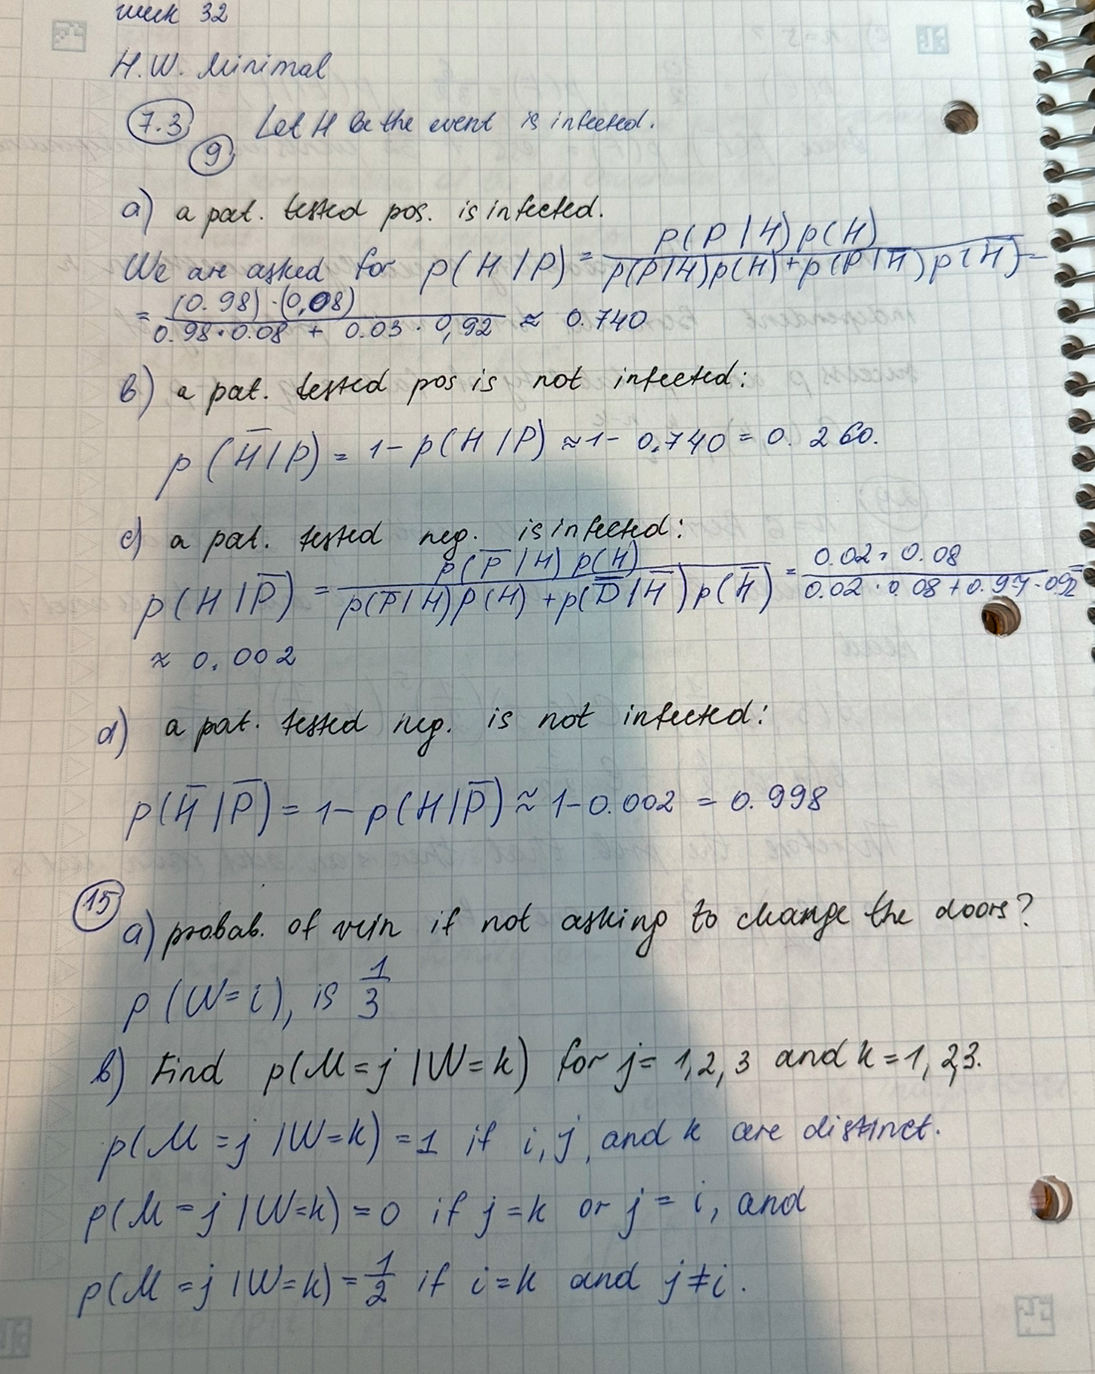 week 32
H.W. Minimal
7.3 Let H be the event is infected.
9
a) a pat. tested pos. is infected.
We are asked for p(H|P) = p(P|H)p(H) / p(P|H)p(H)+p(P|H̅)p(H̅) =
= (0.98)·(0,08) / 0.98·0.08 + 0.03·0,92 ≈ 0.740
b) a pat. tested pos is not infected:
p(H̅|P) = 1-p(H|P) ≈ 1-0.740 = 0.260.
c) a pat. tested neg. is infected:
p(H|P̅) = p(P̅|H)p(H) / p(P̅|H)p(H)+p(P̅|H̅)p(H̅) = 0.02·0.08 / 0.02·0.08+0.97·0.92
≈ 0.002
d) a pat. tested neg. is not infected:
p(H̅|P̅) = 1-p(H|P̅) ≈ 1-0.002 = 0.998
15 a) probab. of win if not asking to change the doors?
p(W=i), is 1/3
b) Find p(M=j|W=k) for j=1,2,3 and k=1,2,3.
p(M=j|W=k)=1 if i,j, and k are distinct.
p(M=j|W=k)=0 if j=k or j=i, and
p(M=j|W=k)=1/2 if i=k and j≠i.